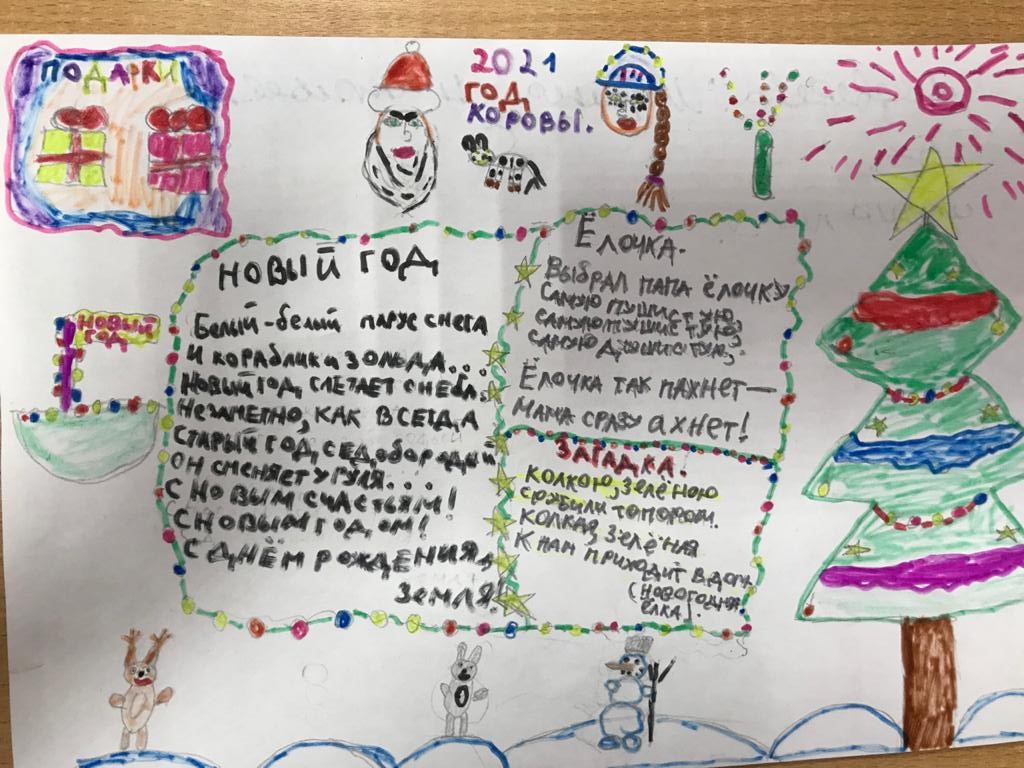 ПОДАРКИ
2021
ГОД
КОРОВЫ.
НОВЫЙ
ГОД
НОВЫЙ ГОД
Белый-белый парус снега
И кораблик изо льда...
Новый год слетает с неба,
Незаметно, как всегда
Старый год, седобородый
Он сменяет у руля...
С новым счастьям!
С новым годом!
С днём рождения,
Земля!
Ёлочка.
Выбрал папа ёлочку
Самую пушистую,
Самую пушистую,
Самую душистую,
Ёлочка так пахнет—
Мама сразу ахнет!
ЗАГАДКА.
Колкою, зелёною
срубили топором.
Колкая, зелёная
К нам приходит в дом.
(Новогодняя
ёлка)